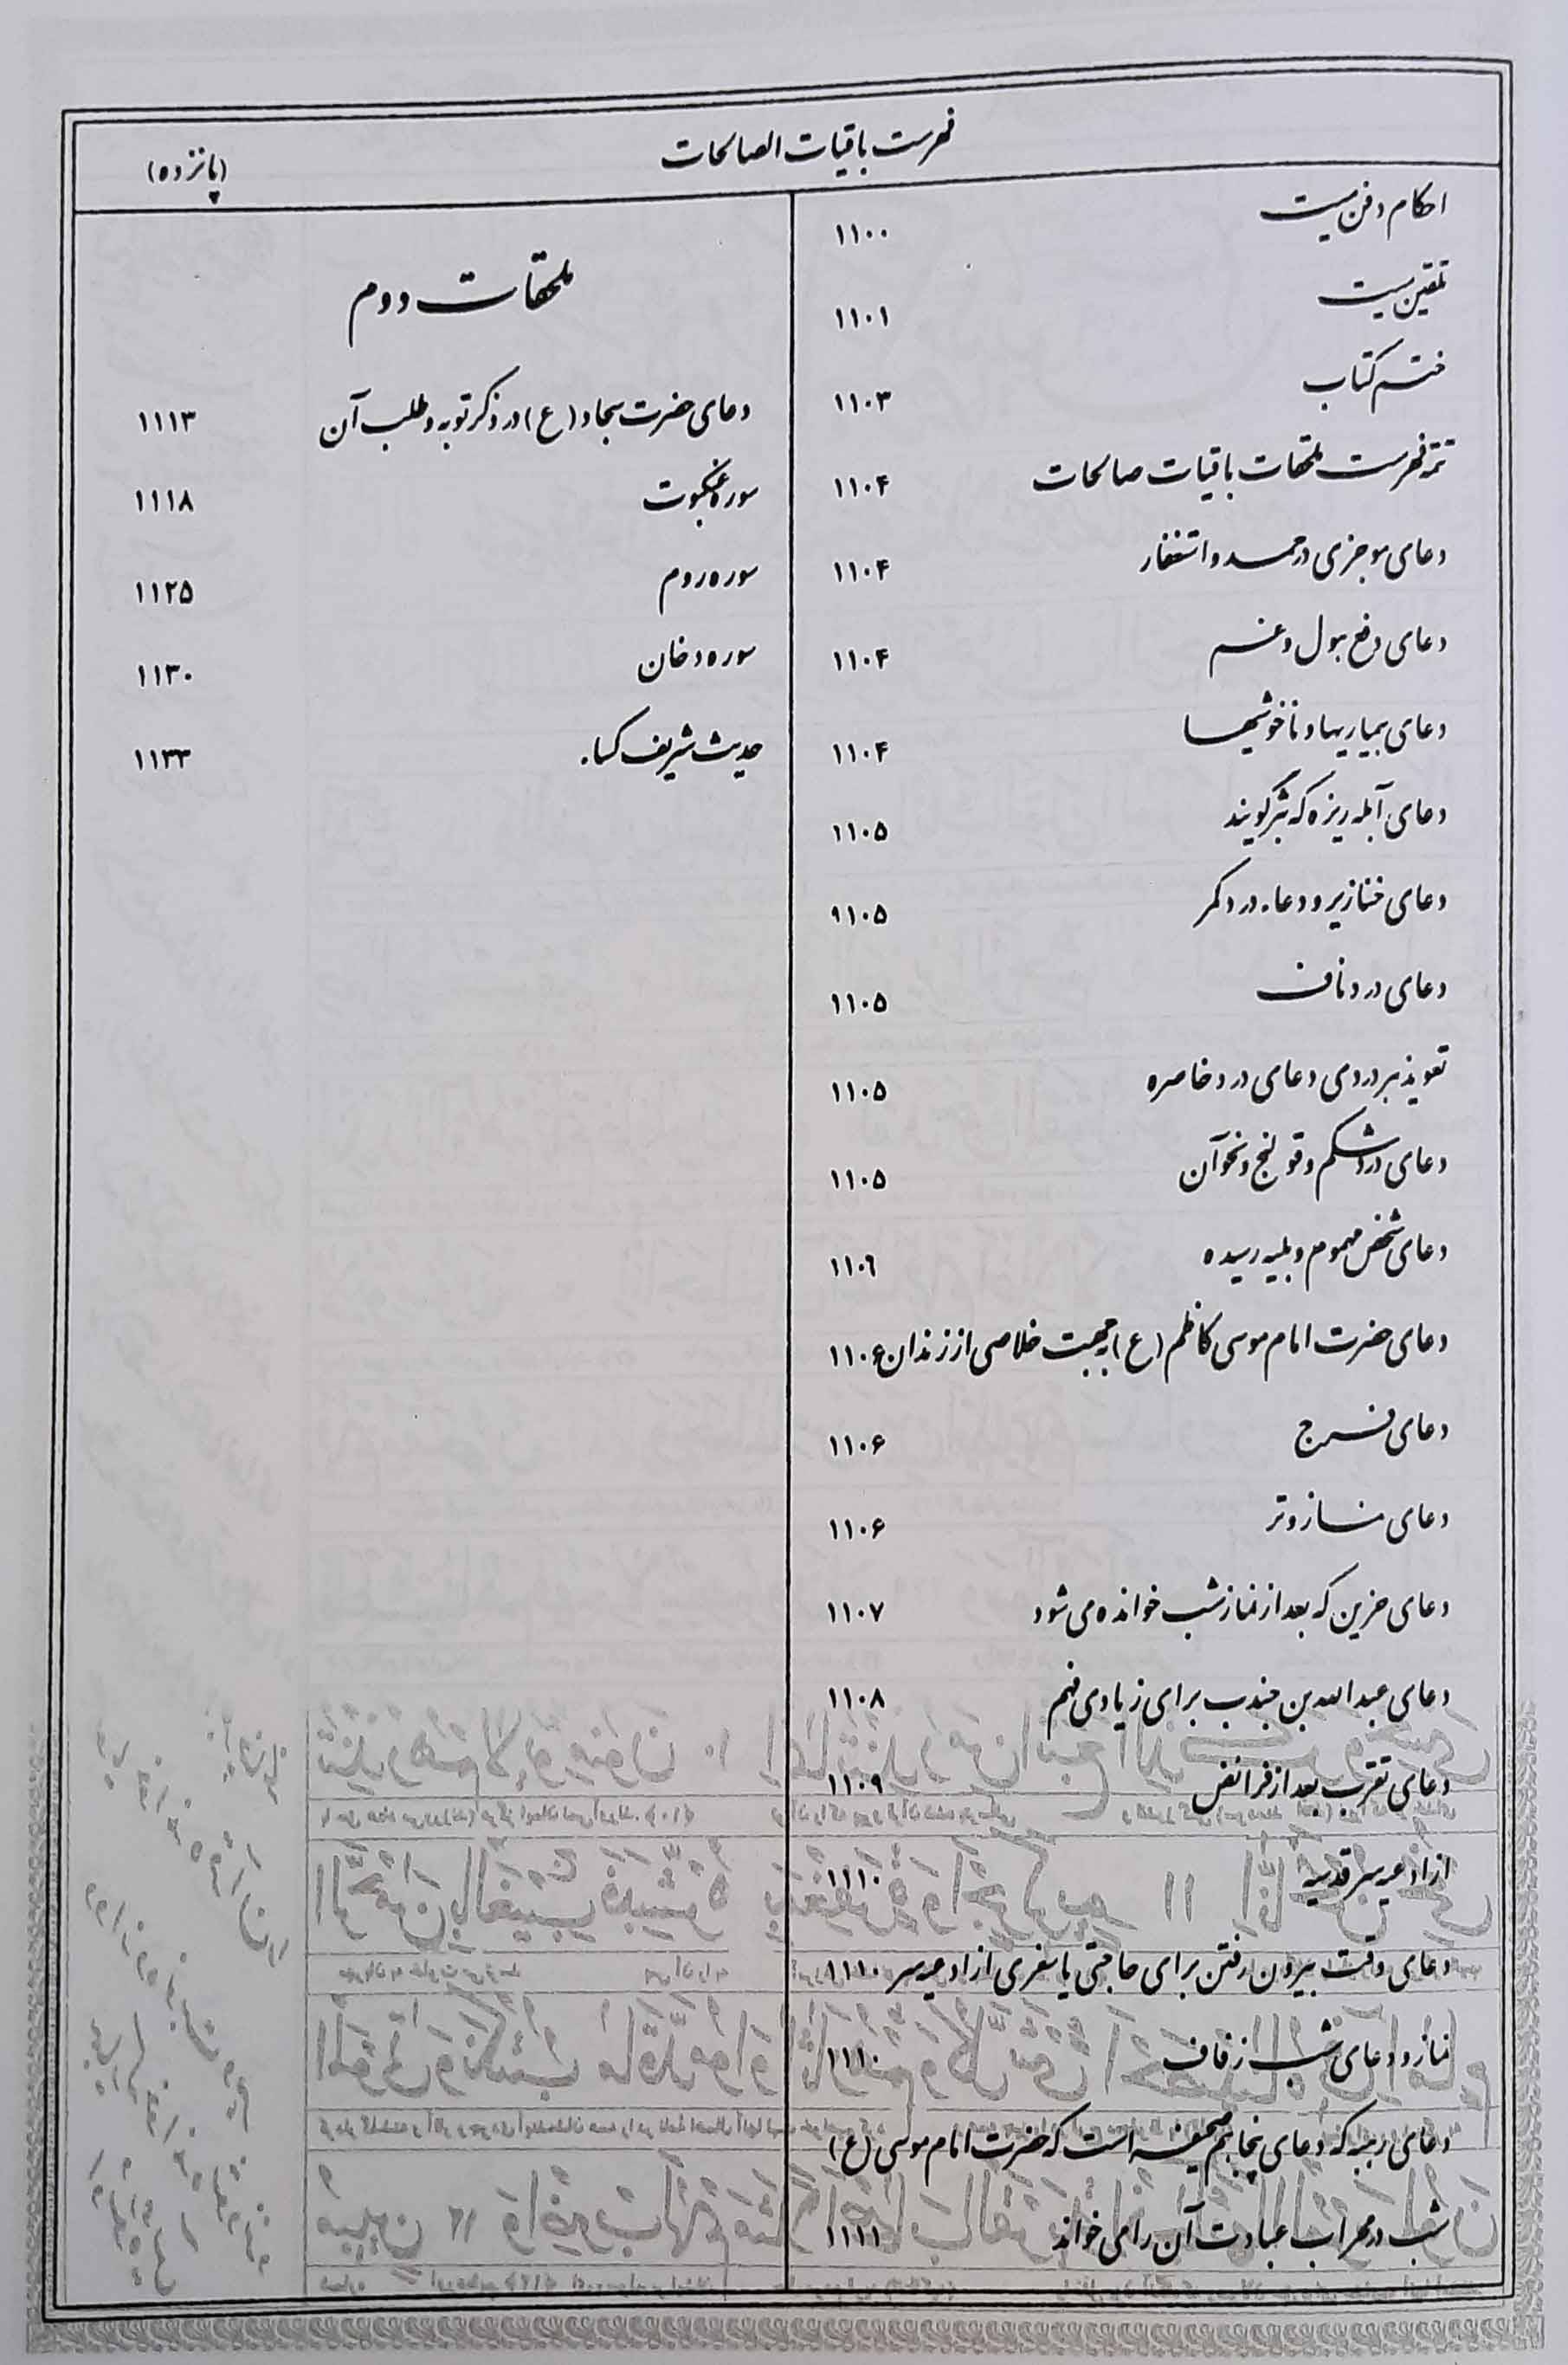 فهرست باقیات الصالحات
(پانزده)
احکام دفن میت ۱۱۰۰
تلقین میت ۱۱۰۱
ختم کتاب ۱۱۰۳
تتمه فهرست ملحقات باقیات صالحات ۱۱۰۴
دعای موجزی در حمد و استغفار ۱۱۰۴
دعای دفع هول و غم ۱۱۰۴
دعای بیماریها و ناخوشیها ۱۱۰۴
دعای آبله ریزه که بثر گویند ۱۱۰۵
دعای خنازیر و دعاء درد کمر ۹۱۰۵
دعای درد ناف ۱۱۰۵
تعویذ هر دردی دعای درد خاصره ۱۱۰۵
دعای درد شکم و قولنج و نحو آن ۱۱۰۵
دعای شخص مهموم و بلیه رسیده ۱۱۰۶
دعای حضرت امام موسی کاظم (ع) بجهت خلاصی از زندان ۱۱۰۶
دعای فرج ۱۱۰۶
دعای نماز وتر ۱۱۰۶
دعای حزین که بعد از نماز شب خوانده می شود ۱۱۰۷
دعای عبدالله بن جندب برای زیادی فهم ۱۱۰۸
دعای تقرب بعد از فرائض ۱۱۰۹
از ادعیه سر قدسیه ۱۱۱۰
دعای وقت بیرون رفتن برای حاجتی یا سفری از ادعیه سر ۱۱۱۰
نماز و دعای شب زفاف ۱۱۱۰
دعای رهبه که دعای پنجاهم صحیفه است که حضرت امام موسی (ع)
شب در محراب عبادت آن را می خواند ۱۱۱۱
ملحقات دوم
دعای حضرت سجاد (ع) در ذکر توبه و طلب آن ۱۱۱۳
سوره عنکبوت ۱۱۱۸
سوره روم ۱۱۲۵
سوره دخان ۱۱۳۰
حدیث شریف کساء ۱۱۳۳